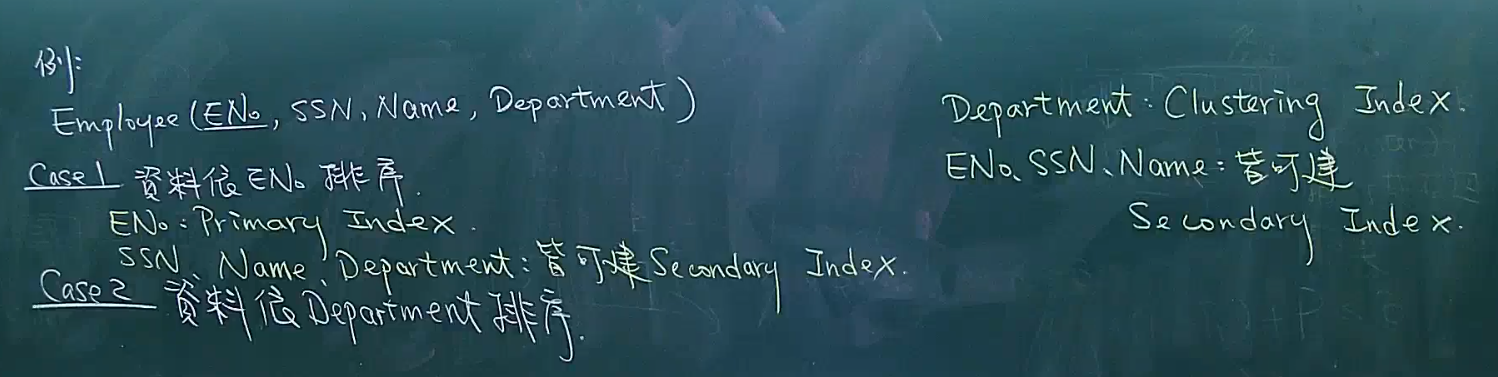 例:
Employee(ENo, SSN, Name, Department)
Case1 資料依ENo排序.
ENo: Primary Index.
SSN、Name、Department: 皆可建Secondary Index.
Case2 資料依Department排序.
Department: Clustering Index.
ENo、SSN、Name: 皆可建
Secondary Index.